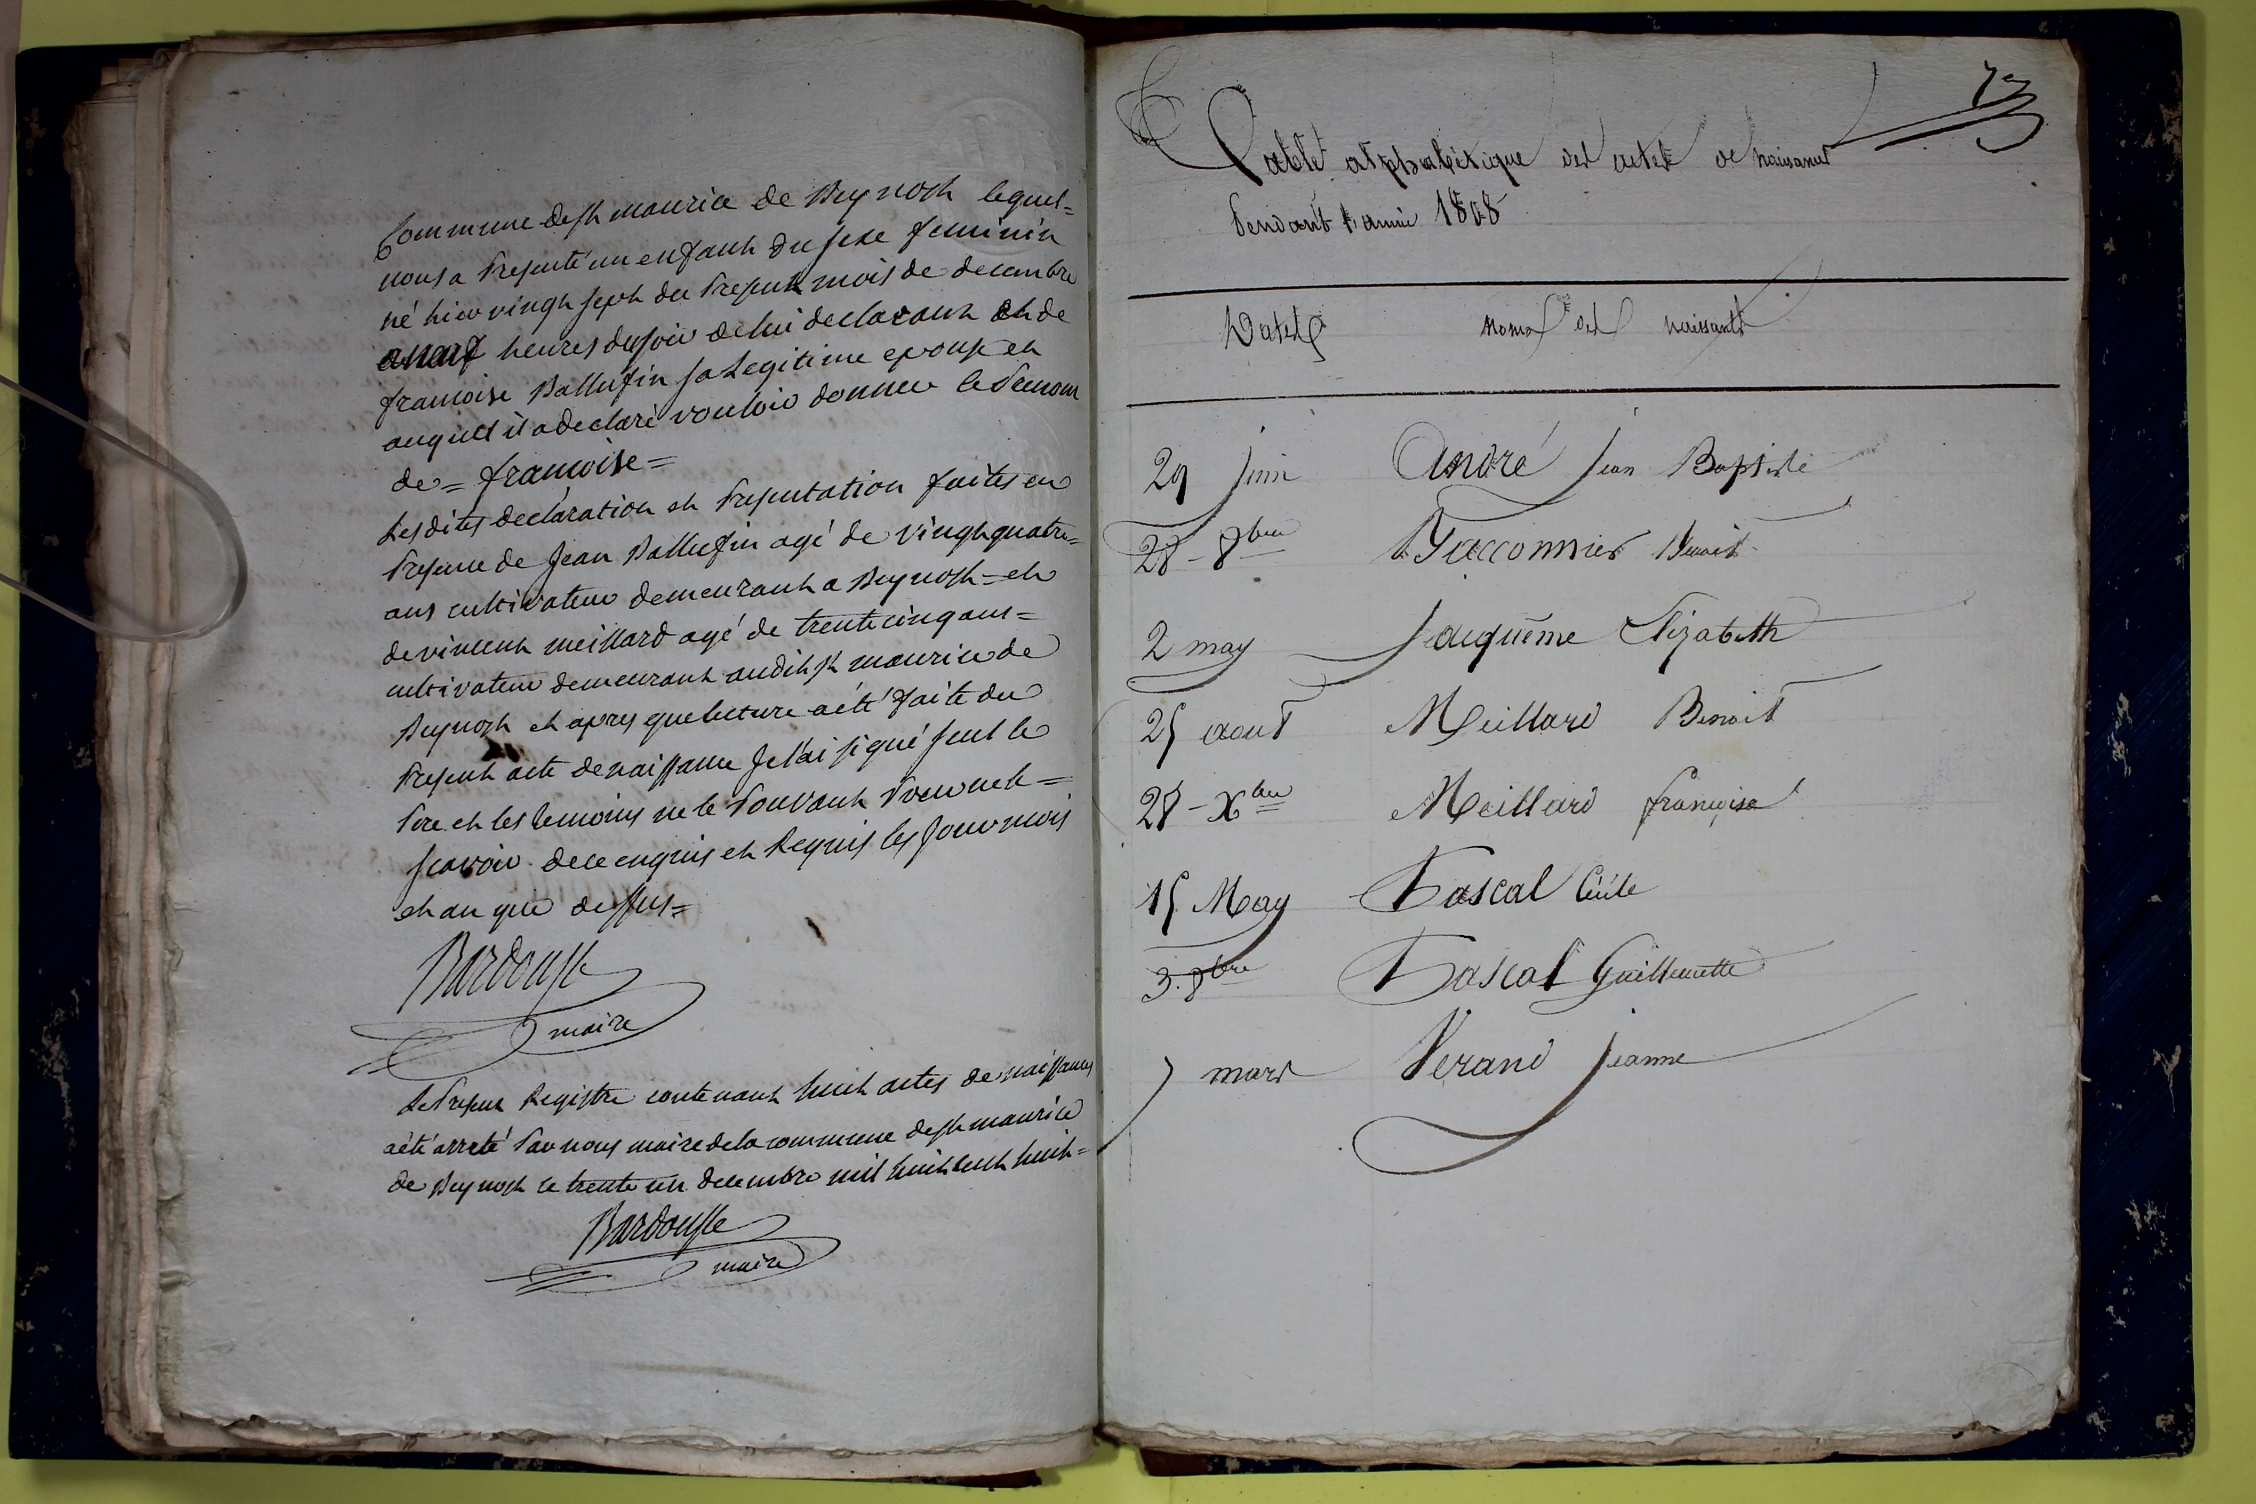 Commune de st maurice de Beynost lequel=
nous a presenté un enfant du sexe feminin
né hier vingt sept du present mois de decembre
a neuf heures du soir de lui declarant et de
francoise Ballufin sa Legitime epouse et
auquel il a declaré vouloir donner le prenom
de = francoise =
Lesdites declaration et presentation faites en
presence de Jean Ballufin agé de vingt quatre=
ans cultivateur demeurant a Beynost = et
de vincent meillard agé de trente cinq ans=
cultivateur demeurant audit st maurice de
Beynost et apres que lecture a été faite du
present acte de naissance Je l'ai signé seul le
pere et les temoins ne le pouvant pour ne le=
scavoir de ce enquis et Requis les jour mois
et an que dessus=
Bardousse
maire
Le present Registre contenant huit actes de naissances
a été arreté par nous maire de la commune de st maurice
de Beynost ce trente un decembre mil huit cent huit=
Bardousse
maire
Table alphabétique des actes de naissances
pendant l'année 1808
Dates noms des naissants
29 juin André jean Baptiste
28 - 8bre Benoit
2 may jacquême Elizabeth
25 aout Meillard Benoit
28 - Xbre Meillard françoise
15 May Pascal Cécile
3. 8bre Pascal Guillemette
7 mars Verand jeanne